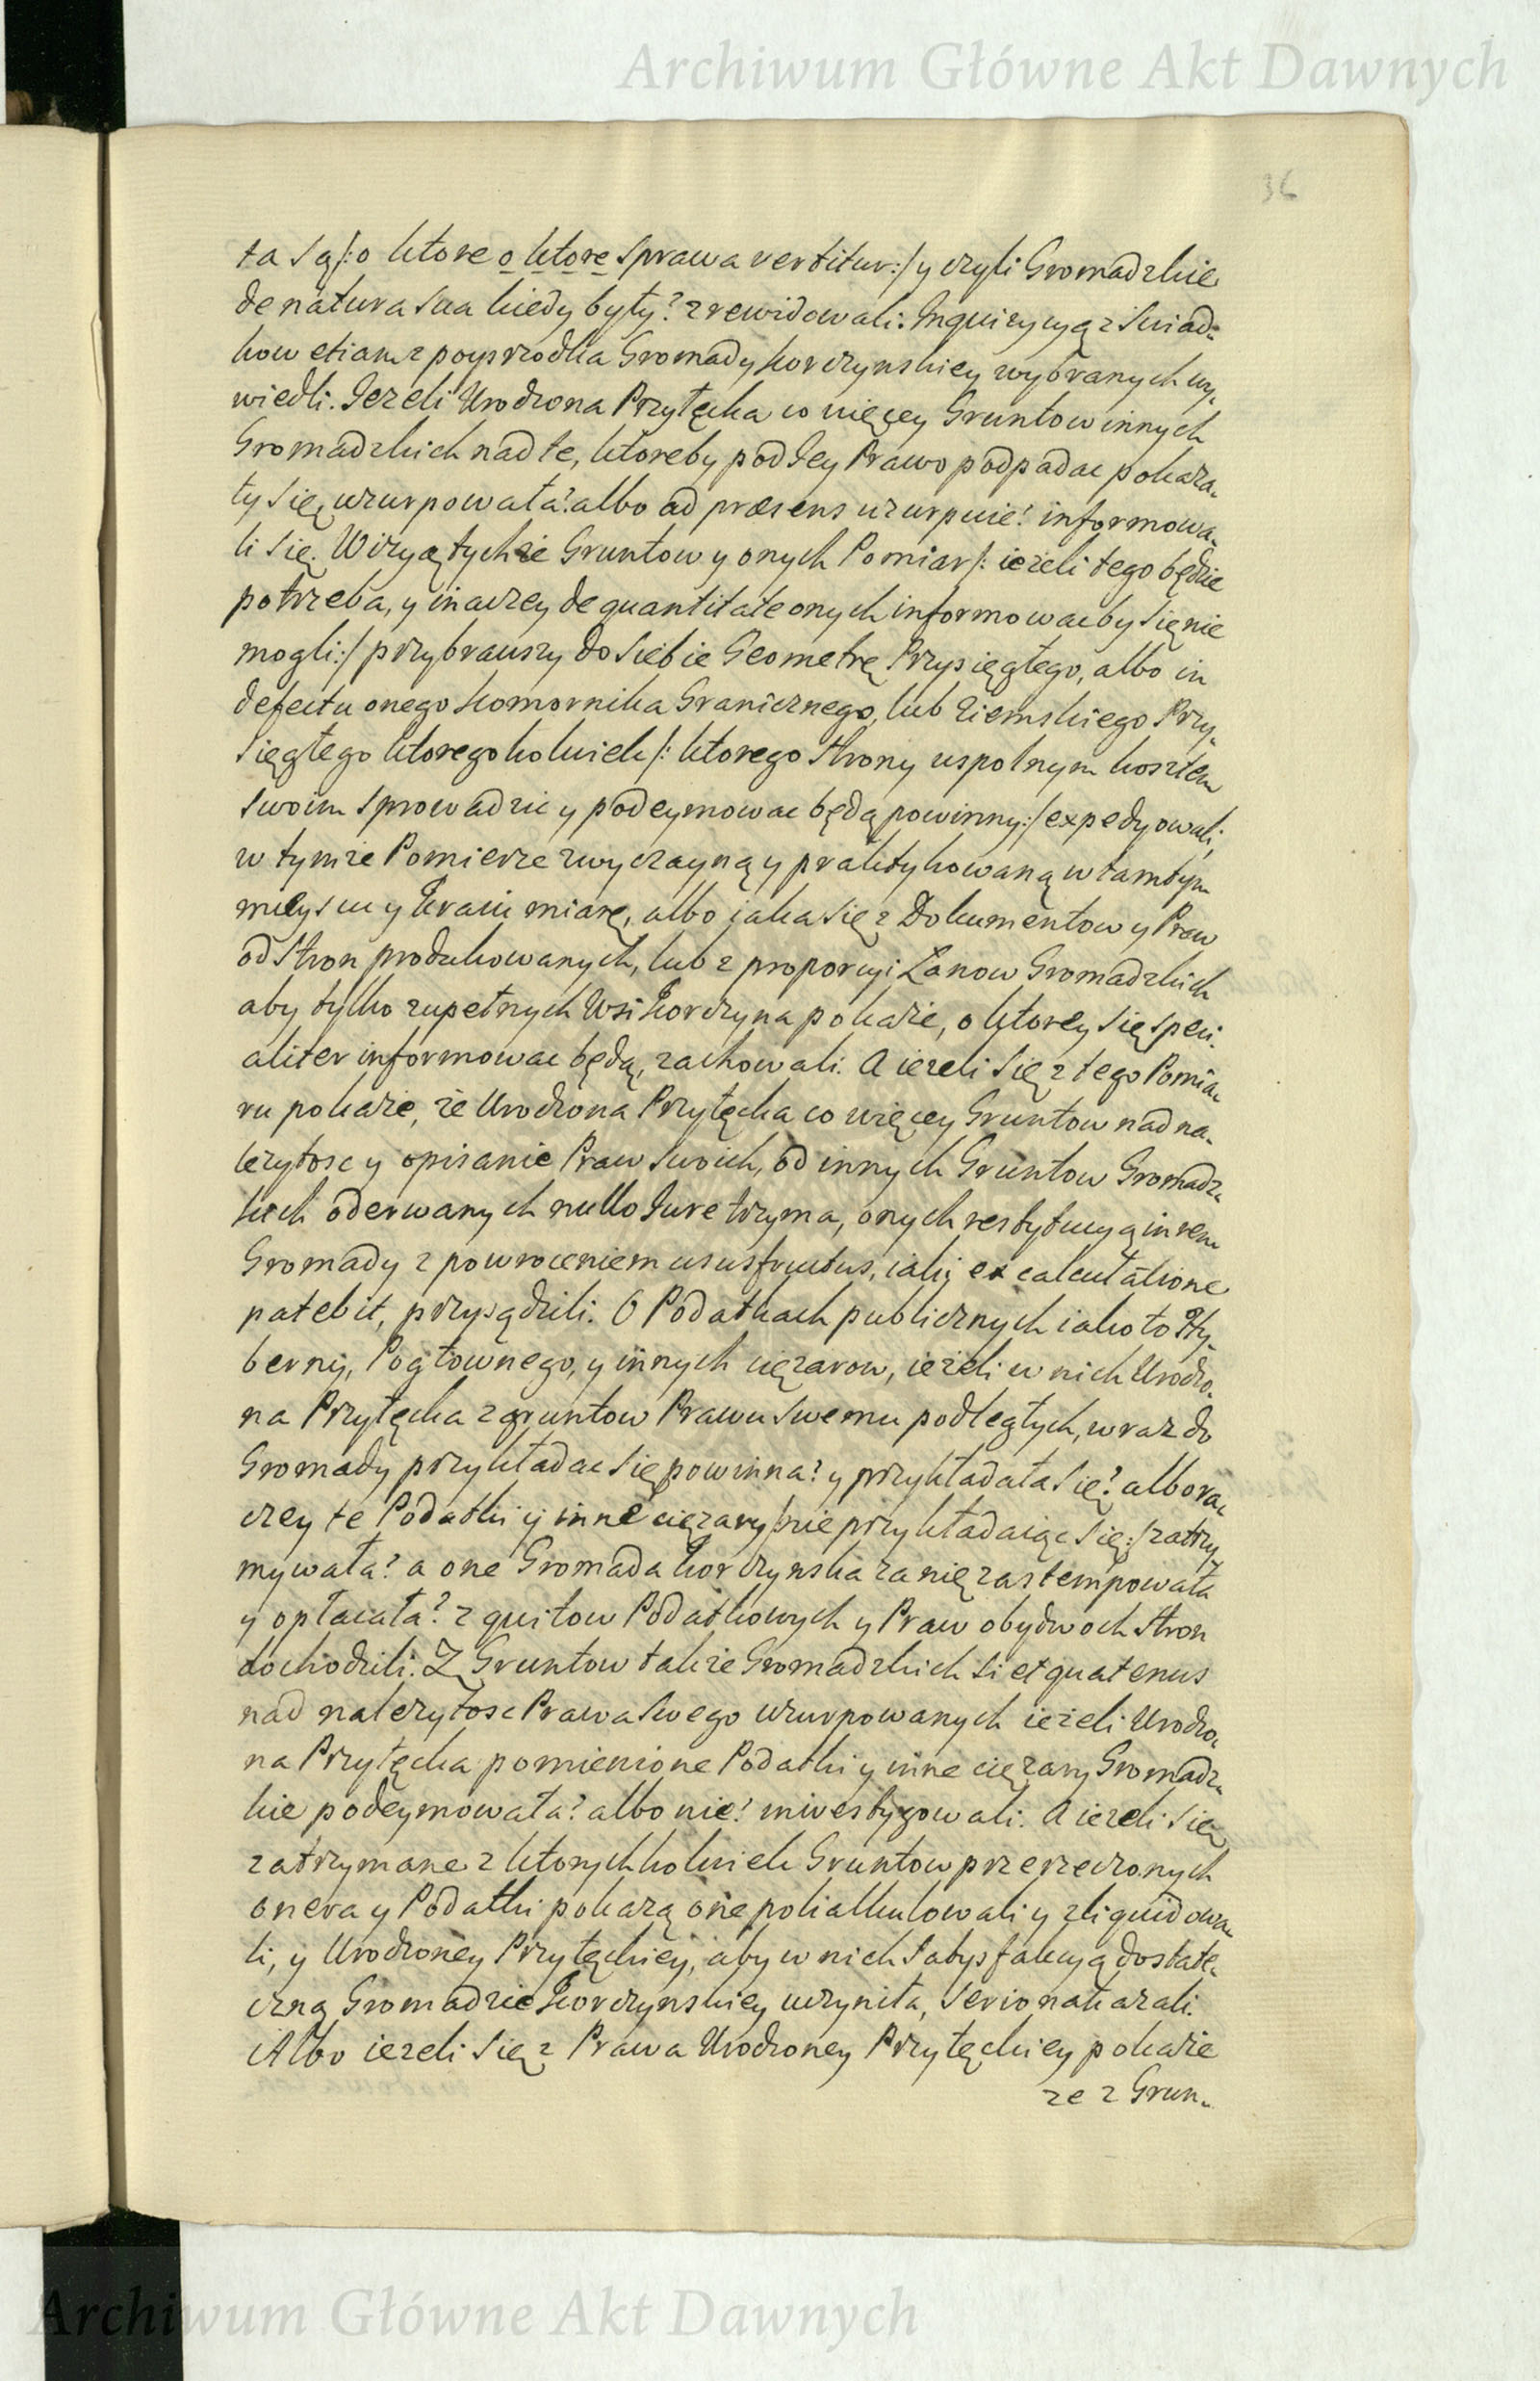 Archiwum Główne Akt Dawnych
36
ta są /: o ktore o ktore sprawa vertitur :/ y czyli Gromadzkie
de natura sua kiedy były? zrewidowali: Inquizycyą z Swiad-
kow etiam z posrzodka Gromady Korczynskiey wybranych wy-
wiedli. Jezeli Urodzona Przyłęcka co więcey Gruntow innych
Gromadzkich nad te, ktoreby pod Jey Prawo podpadac pokaza-
ły się, uzurpowała? albo ad præsens uzurpuie? informowa-
li się. Wizyą tychże Gruntow y onych Pomiar /: ieżeli tego będzie
potrzeba, y inaczey de quantitate onych informowac by się nie
mogli :/ przybrawszy do siebie Geometrę Przysięgłego, albo in
defectu onego Komornika Granicznego, lub Ziemskiego Przy-
sięgłego ktoregokolwiek /: ktorego Strony wspolnym kosztem
swoim sprowadzic y podeymowac będą powinny :/ expedyowali,
w tymże Pomierze zwyczayną y praktykowaną w tamtym
mieyscu y kraiu miarę, albo jaka się z Dokumentow y Praw
od Stron produkowanych, lub z proporcyi Łanow Gromadzkich
aby tylko zupełnych Wsi Korczyna pokaże, o ktorey się speci-
aliter informowac będą, zachowali. A ieżeli się z tego Pomia-
ru pokaże, że Urodzona Przyłęcka co więcey Gruntow nad na-
lezytosc y opisanie Praw swoich, od innych Gruntow Gromadz-
kich oderwanych nullo Jure trzyma, onych restytucyą in rem
Gromady z powroceniem ususfructus, iaki ex calculatione
patebit, przysądzili. O Podatkach publicznych iako to Hy-
berny, Pogłownego, y innych cięzarow, ieżeli w nich Urodzo-
na Przyłęcka z gruntow Prawu swemu podległych, wraz do
Gromady przykładac się powinna? y przykładała się? albo ra-
czey te Podatki y inne cięzary /: nie przykładaiąc się :/ zatrzy
mywała? a one Gromada Korczynska za nię zastempowała
y opłacała? z quitow Podatkowych y Praw obydwoch Stron
dochodzili. Z Gruntow takze Gromadzkich si et quatenus
nad nalezytosc Prawa swego uzurpowanych ieżeli Urodzo-
na Przyłęcka pomienione Podatki y inne cięzary Gromadz-
kie podeymowała? albo nie? inwestygowali. A ieżeli się
zatrzymane z ktorychkolwiek Gruntow przerzeczonych
onera y Podatki pokażą one pokalkulowali y zliquidowa-
li, y Urodzoney Przyłęckiey, aby w nich Satysfakcyą dostate-
czną Gromadzie Korczynskiey uczyniła, serio nakazali.
Albo ieżeli się z Prawa Urodzoney Przyłęckiey pokaże
ze z Grun-
Archiwum Główne Akt Dawnych